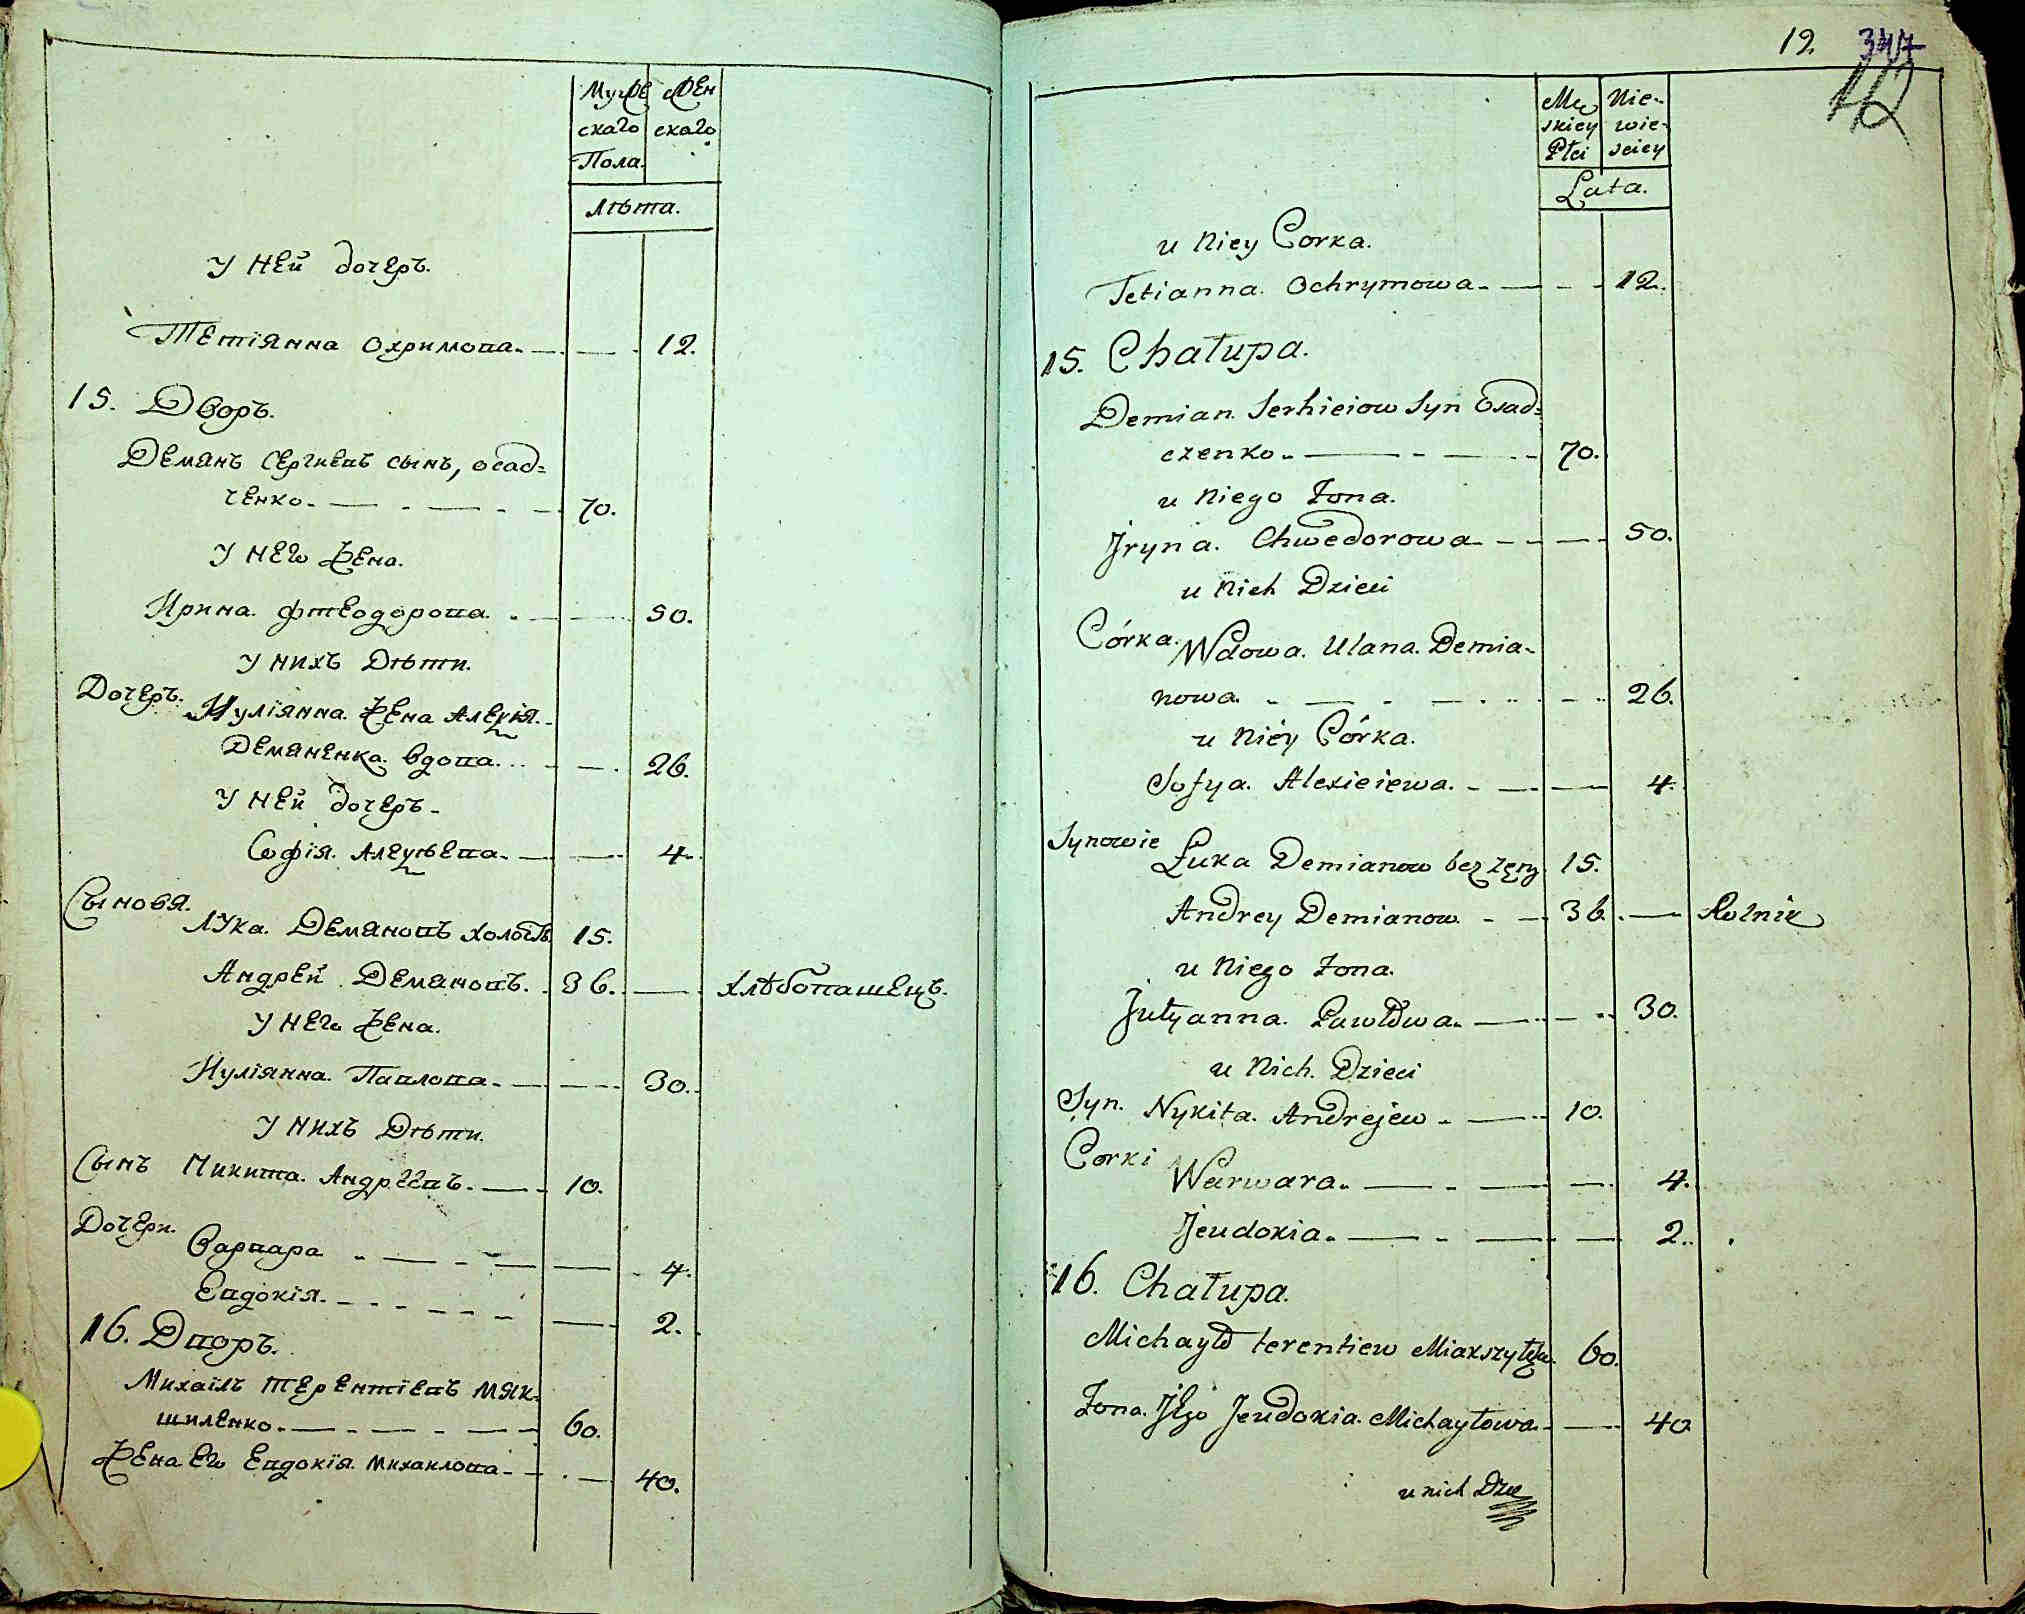 Мужe Жен
скаго скаго
Пола.
лѣта.
У ней дочерь.
Тетіянна Охримова. 12.
15. Дворъ.
Демянъ Сергиевъ сынъ, осад=
ченко. 70.
У него жена.
Ирина. Фтеодорова. 50.
У нихъ Дѣти.
Дочерь. Иуліянна. жена Алексія.
Демяненка. вдова. 26.
У ней дочерь.
Софія. Алексѣева. 4.
Сыновя.
Лука. Демяновъ холостъ 15.
Андрей Демяновъ. 36. хлѣбопашецъ.
У него жена.
Иуліянна. Павлова. 30.
У нихъ Дѣти.
Сынъ Никита. Андреевъ. 10.
Дочери. Варвара 4.
Евдокія. 2.
16. Дворъ.
Михаілъ Терентіевъ мяк-
шиленко. 60.
Жена его Евдокія. Михаилова. 40.
12. 347
Mę Nie-
skiey wie-
Płci sciey
Lata.
u Niey Corka.
Tetianna. Ochrymowa. 12.
15. Chałupa.
Demian. Serhieiow Syn Osad=
czenko. 70.
u Niego Żona.
Jryna. Chwedorowa 50.
u Nich Dzieci
Córka. Wdowa. Ulana. Demia-
nowa. 26.
u Niéy Córka.
Sofya. Alexieiewa. 4.
Synowie
Łuka Demianow bez żęny 15.
Andrey Demianow 36. Rolnik
u Niego Żona.
Julyanna. Pawłowa. 30.
u Nich. Dzieci
Syn. Nykita. Andrejew. 10.
Corki
Warwara. 4.
Jeudokia. 2.
16. Chałupa.
Michayło terentiew 60.
Żona. Jego Jeudokia. Michayłowa 40
u nich Dzie